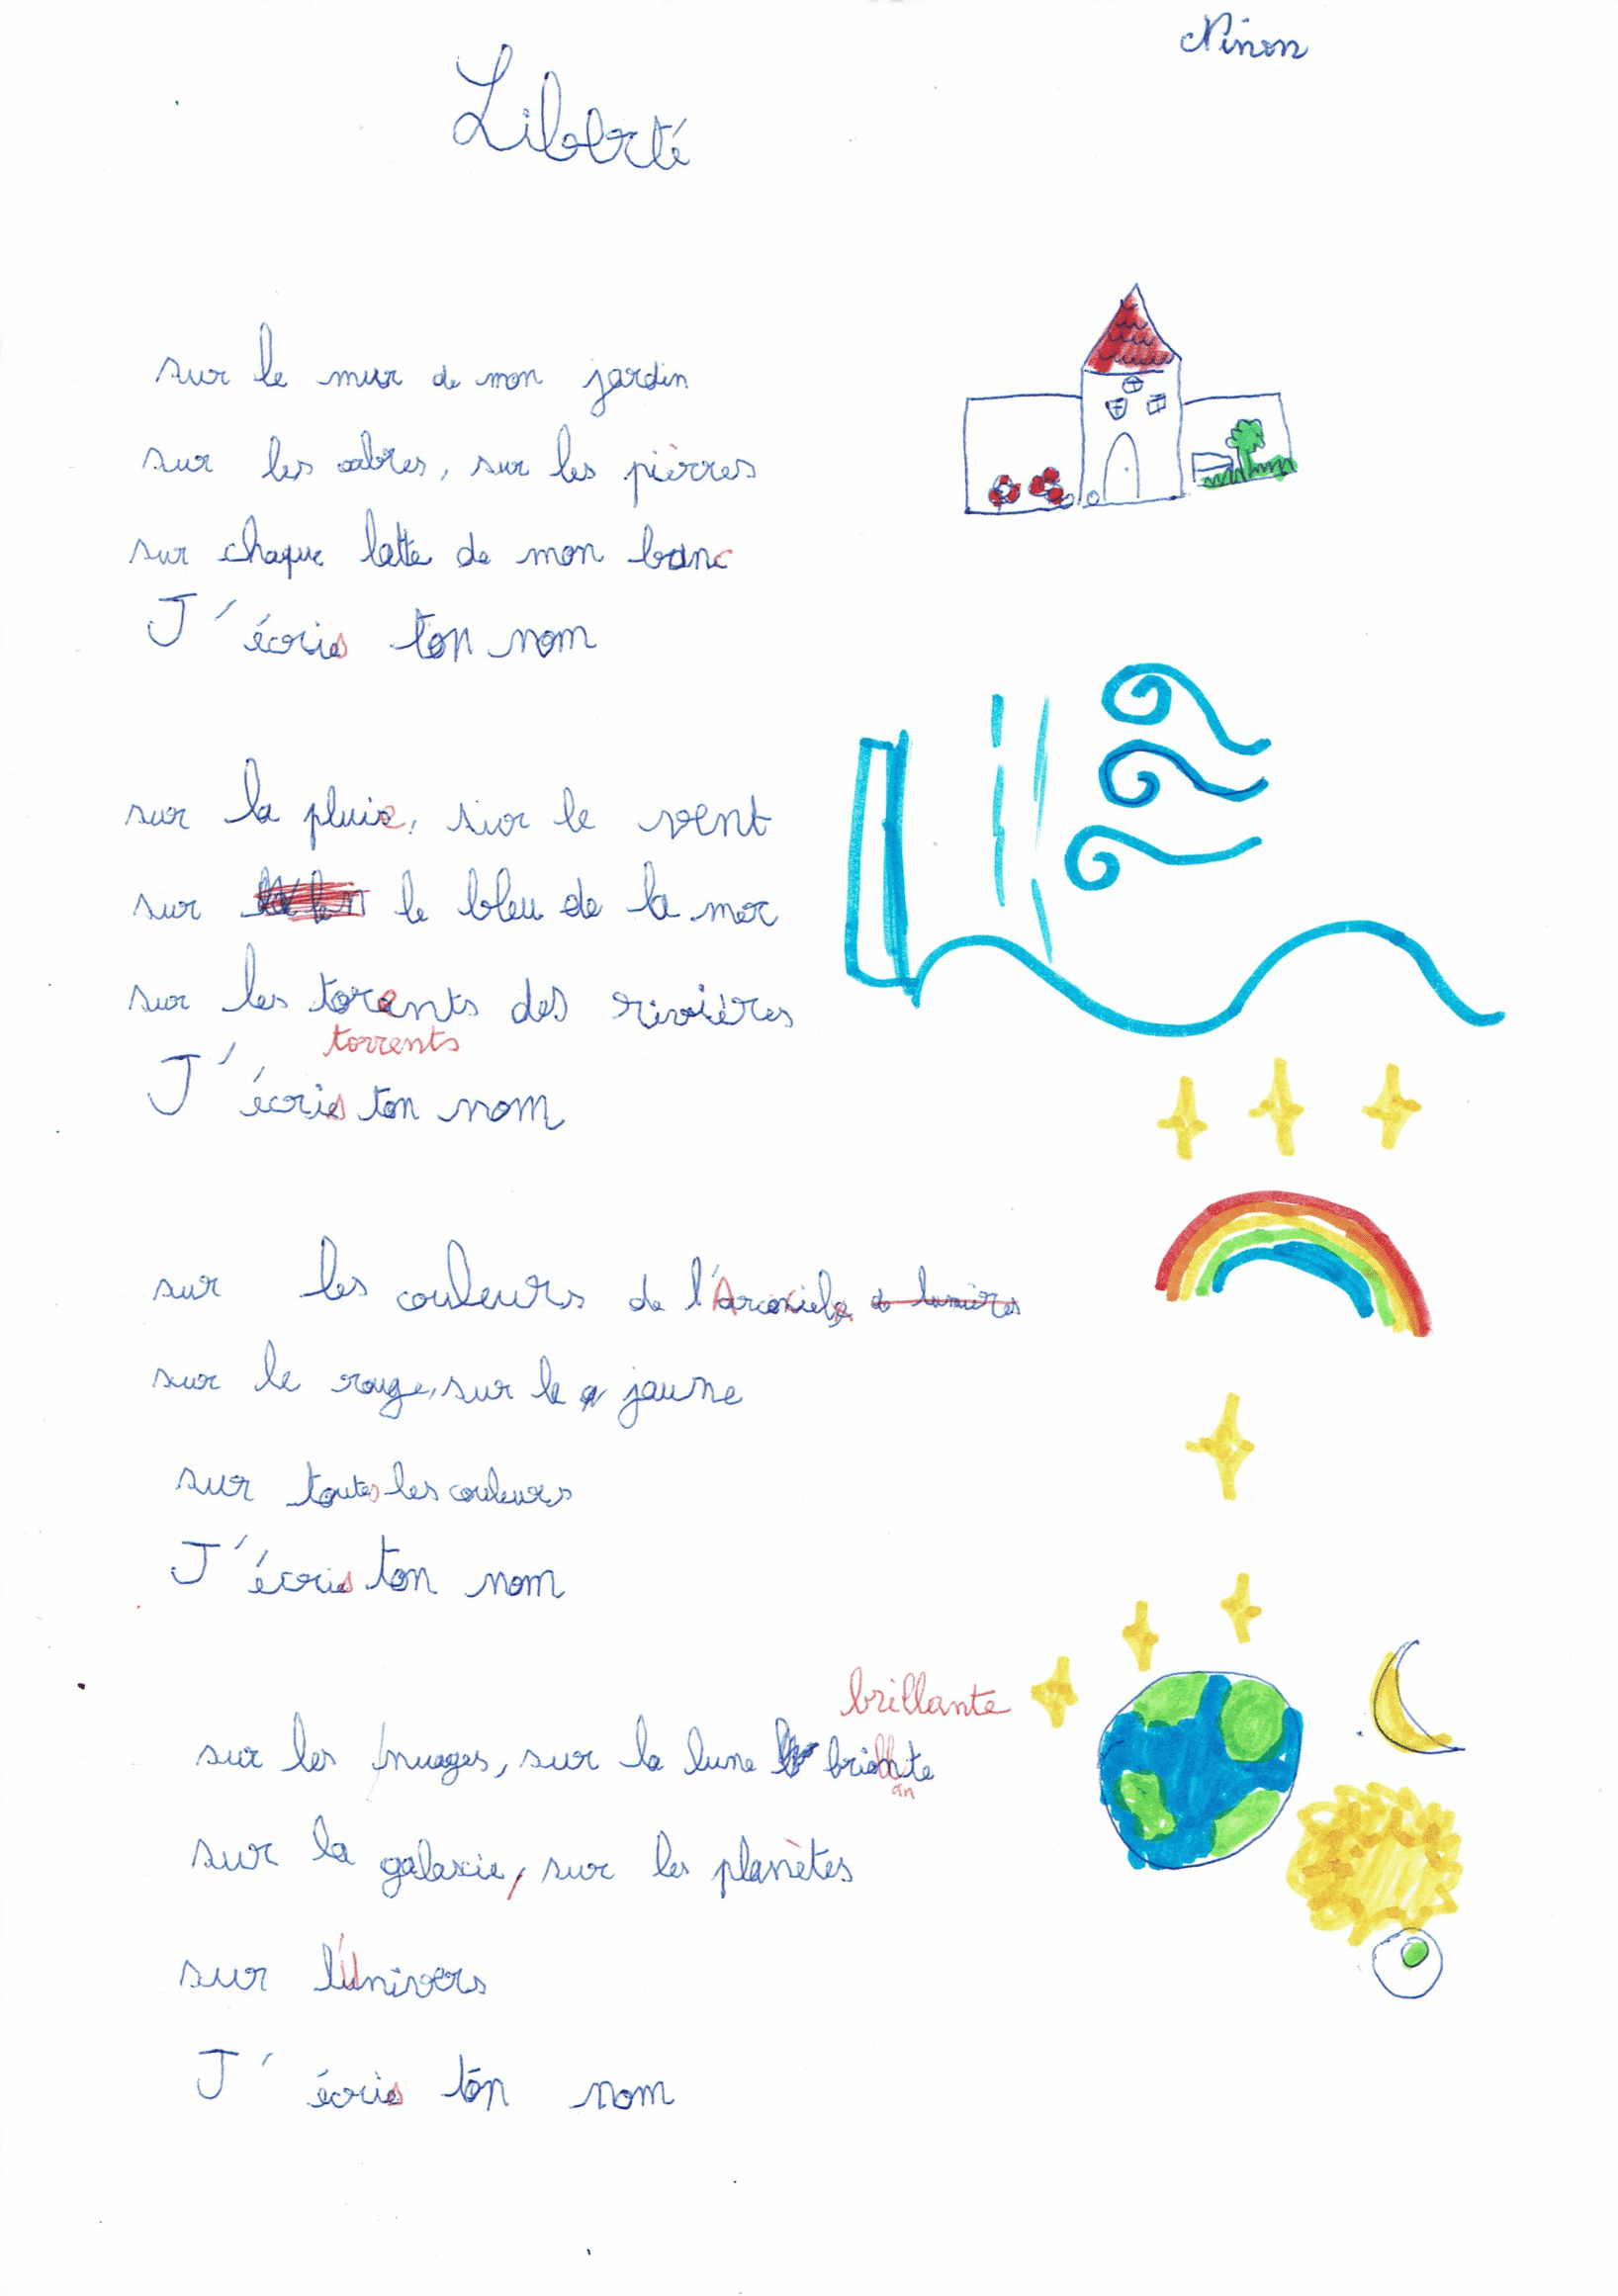 Ninon
Liberté
sur le mur de mon jardin
sur les arbres, sur les pièrres
sur chaque latte de mon banc
J'écris ton nom
sur la pluie, sur le vent
sur le bleu de la mer
sur les torents des rivières
torrents
J'écris ton nom
sur les couleurs de l'Arcenciel
sur le rouge, sur le jaune
sur toutes les couleurs
J'écris ton nom
brillante
sur les nuages, sur la lune
an
sur la galaxie, sur les planètes
sur l'Univers
J'écris ton nom